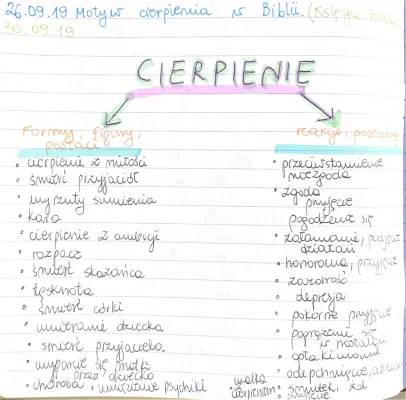 26.09.19 Motyw cierpienia w Biblii. (Księga
30.09.19
CIERPIENIE
Formy, figury,
postaci
• cierpienie z miłości
• śmierć przyjaciół
• wyrzuty sumienia
• kara
• cierpienie z ambicji
• rozpacz
• śmierć skazańca
• tęsknota
• śmierć córki
• umieranie dziecka
• śmierć przyjaciela
• wyparcie się matki
przez dziecko
• choroba • umieranie psychiki
reakcje, postawy
• przeciwstawienie
niezgoda
• zgoda
przyjęcie
pogodzenie się
• załamanie, podjęcie
działań
• honorowe, przyjęcie
• zazdrość
• depresja
• pokorne przyjęcie
• pogrążenie się
w nostalgii
• opłakiwanie
• odepchnięcie,
• walka
z cierpieniem
• smutek, żal